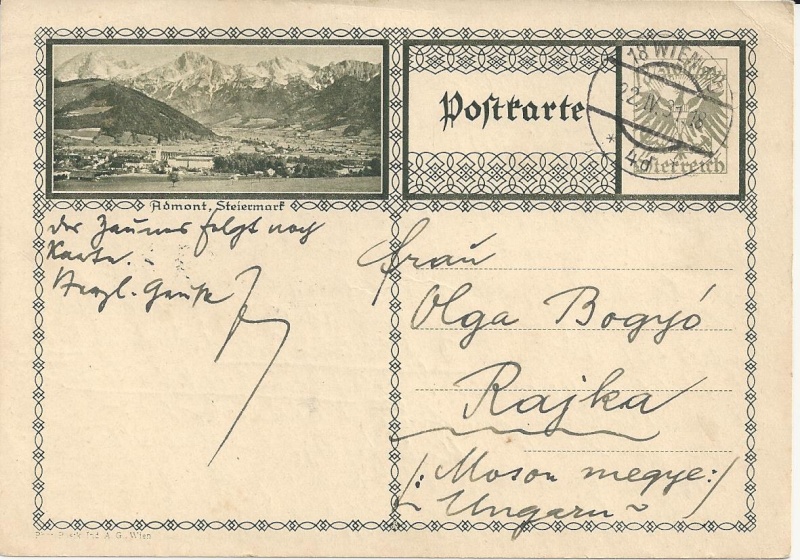 Admont, Steiermark
Postkarte
18 WIEN
22.IV.31.18
* 4d *
Österreich
folgt noch
Karte.
Herzl. Grüße
Frau
Olga Bogyó
Rajka
/: Moson megye :/
Ungarn
Ind. A. G., Wien